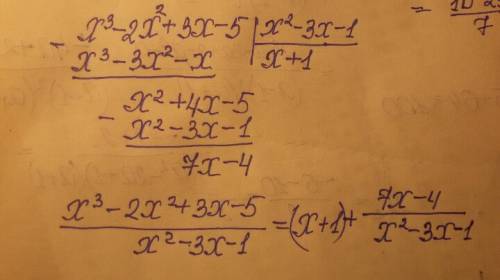 x³-2x²+3x-5 | x²-3x-1
- x³-3x²-x | x+1
x²+4x-5
- x²-3x-1
7x-4
x³-2x²+3x-5 / x²-3x-1 = (x+1) + 7x-4 / x²-3x-1